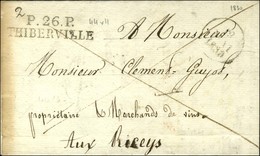 2
P. 26. P.
THIBERVILLE
A Monsieur
Monsieur Clement-Guyot,
propriétaire & Marchands de vins.
Aux Riceys